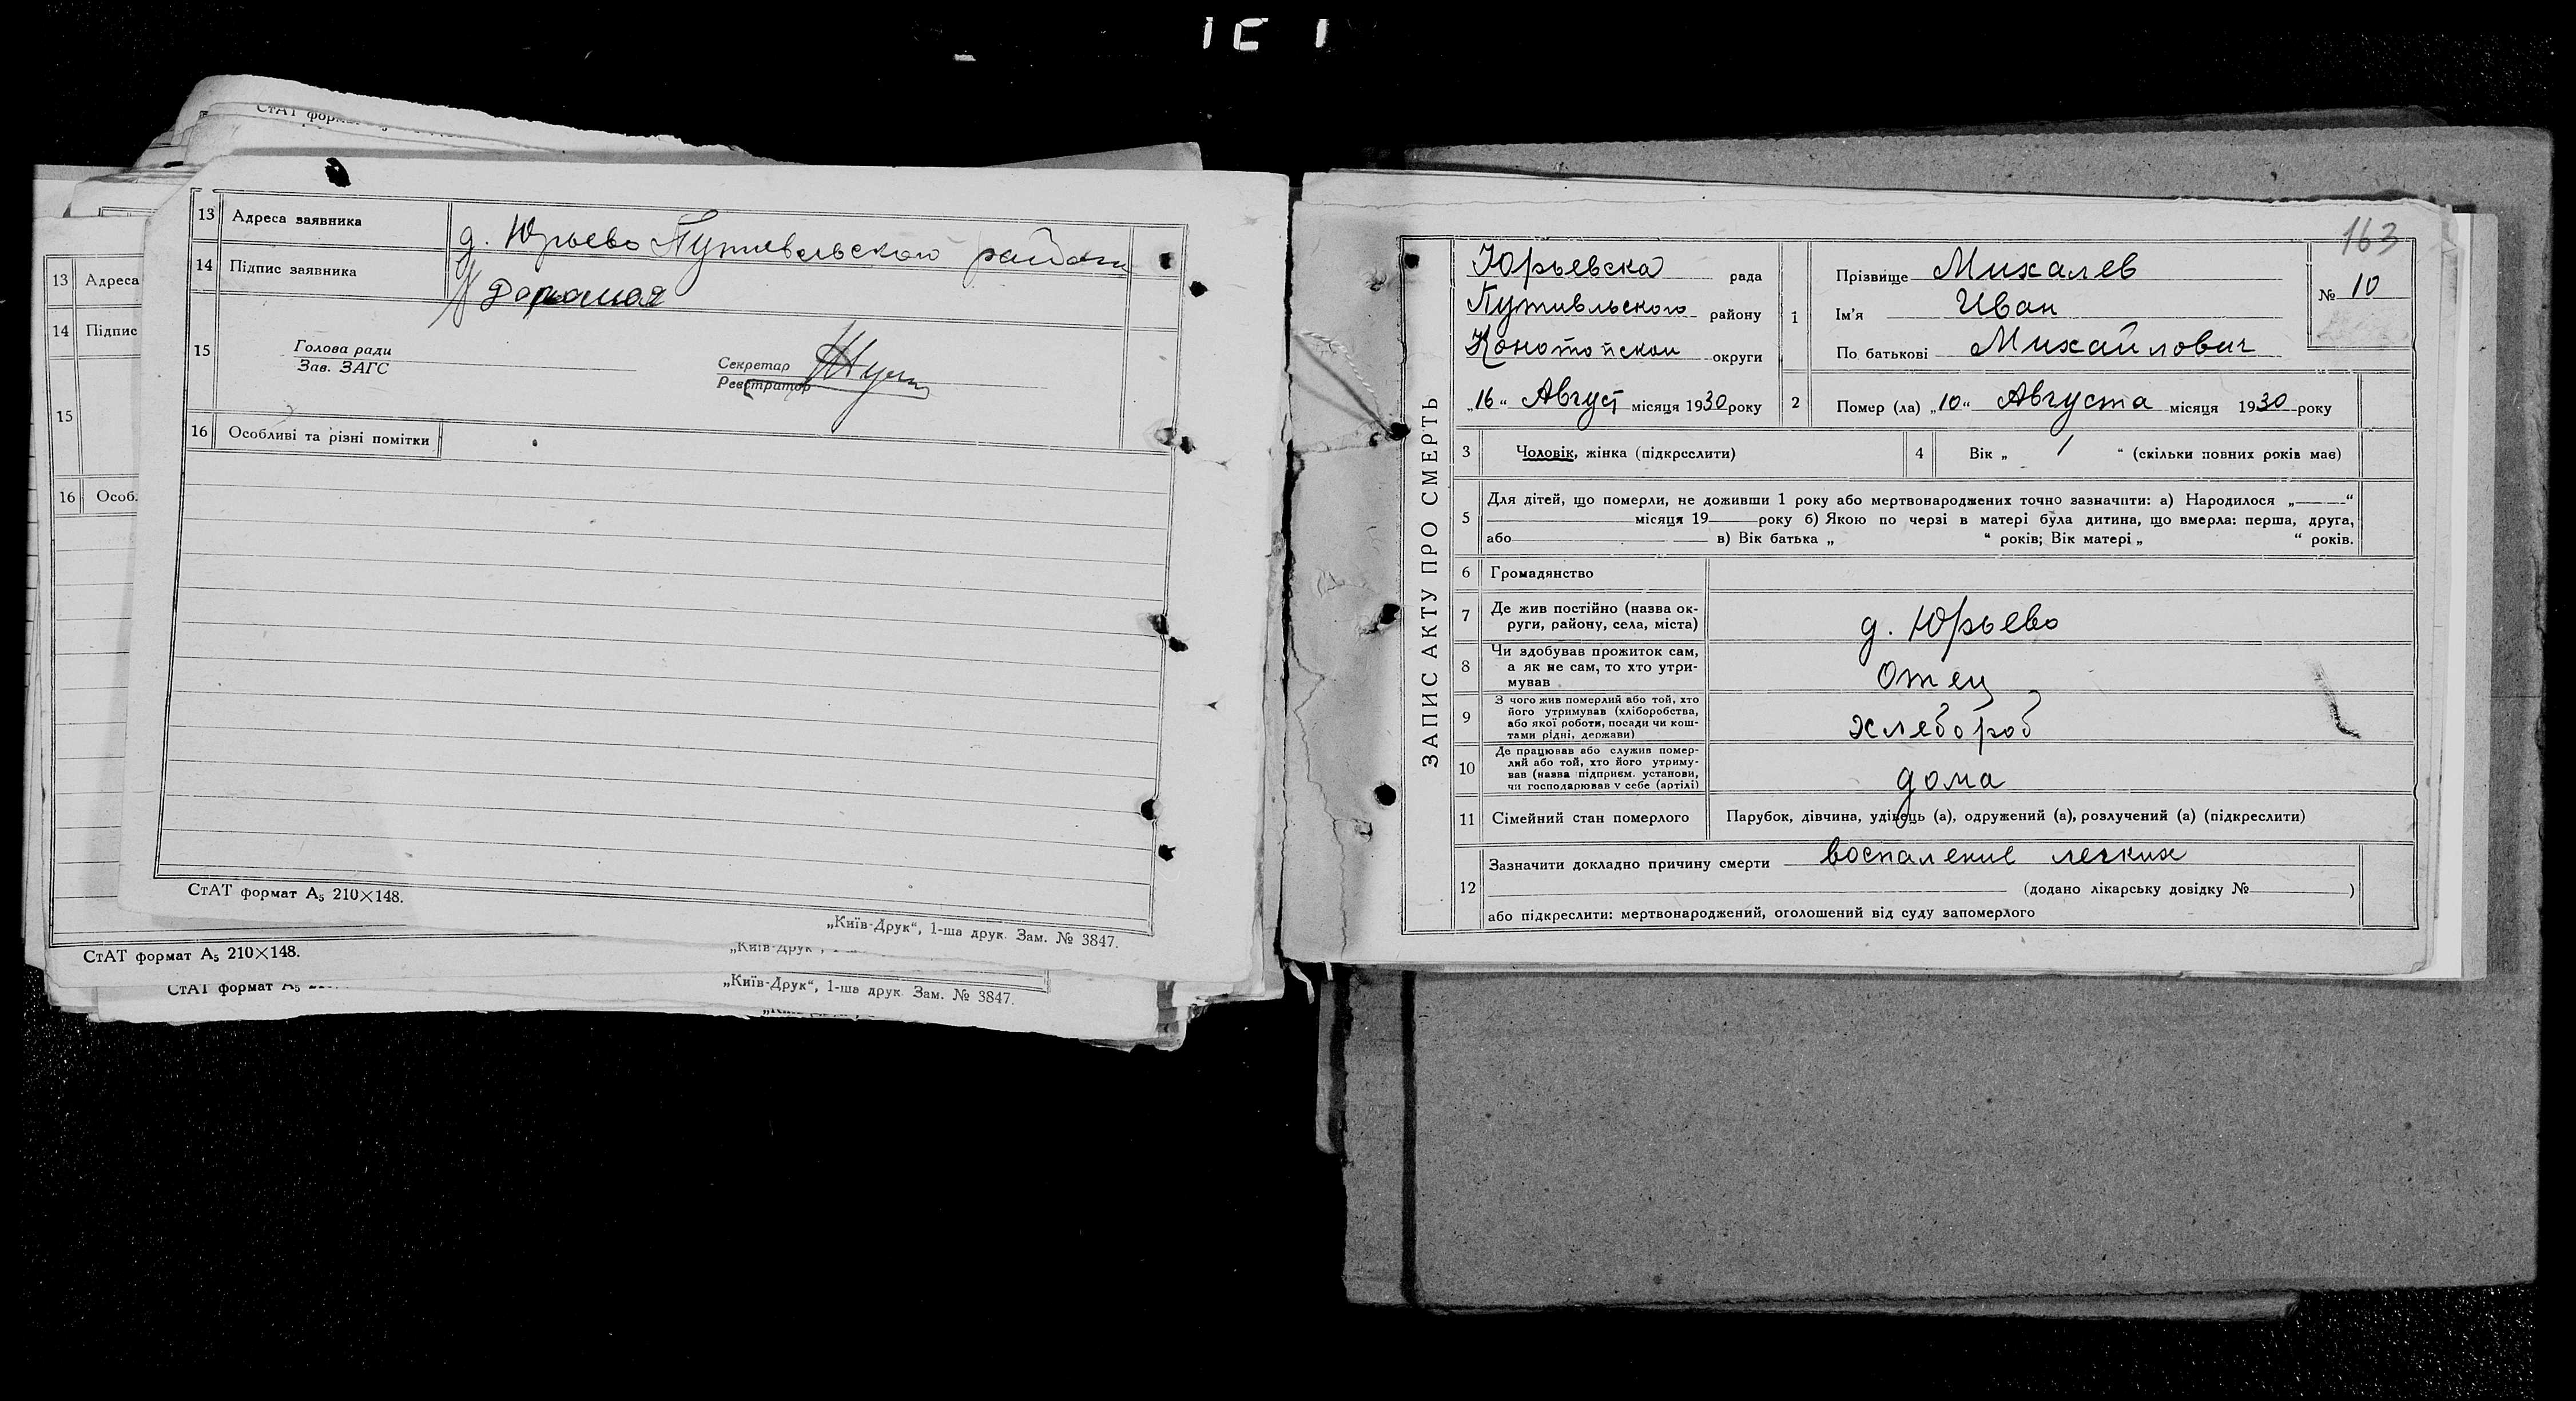 СтАТ
13 Адреса заявника д. Юрьево Путивельского района
14 Підпис заявника
15 Голова ради
Зав. ЗАГС
Секретар
Реєстратор
16 Особливі та різні помітки
СтАТ формат А₅ 210×148.
„Київ-Друк“, 1-ша друк. Зам. № 3847.
13 Адреса
14 Підпис
15
16 Особ.
СтАТ формат А₅ 210×148.
„Київ-Друк“
СтАТ формат А₅
„Київ-Друк“, 1-ша друк. Зам. № 3847.
163
ЗАПИС АКТУ ПРО СМЕРТЬ
Юрьевска рада
Путивльского району
Конотопскои округи
„16“ Август місяця 1930 року
1 Прізвище Михалев
Ім'я Иван
По батькові Михайлович
№ 10
2 Помер (ла) „10“ Августа місяця 1930 року
3 Чоловік, жінка (підкреслити)
4 Вік „ 1 “ (скільки повних років має)
5 Для дітей, що померли, не доживши 1 року або мертвонароджених точно зазначити: а) Народилося „——“
місяця 19 року б) Якою по черзі в матері була дитина, що вмерла: перша, друга,
або в) Вік батька „ “ років; Вік матері „ “ років.
6 Громадянство
7 Де жив постійно (назва ок-
руги, району, села, міста) д. Юрьево
8 Чи здобував прожиток сам,
а як не сам, то хто утри-
мував Отец
9 З чого жив померлий або той, хто
його утримував (хліборобства,
або якої роботи, посади чи кош-
тами рідні, держави) хлебороб
10 Де працював або служив помер-
лий або той, хто його утриму-
вав (назва підприєм. установи,
чи господарював у себе (артілі) дома
11 Сімейний стан померлого Парубок, дівчина, удівець (а), одружений (а), розлучений (а) (підкреслити)
12 Зазначити докладно причину смерти воспаление легких
(додано лікарську довідку № )
або підкреслити: мертвонароджений, оголошений від суду запомерлого